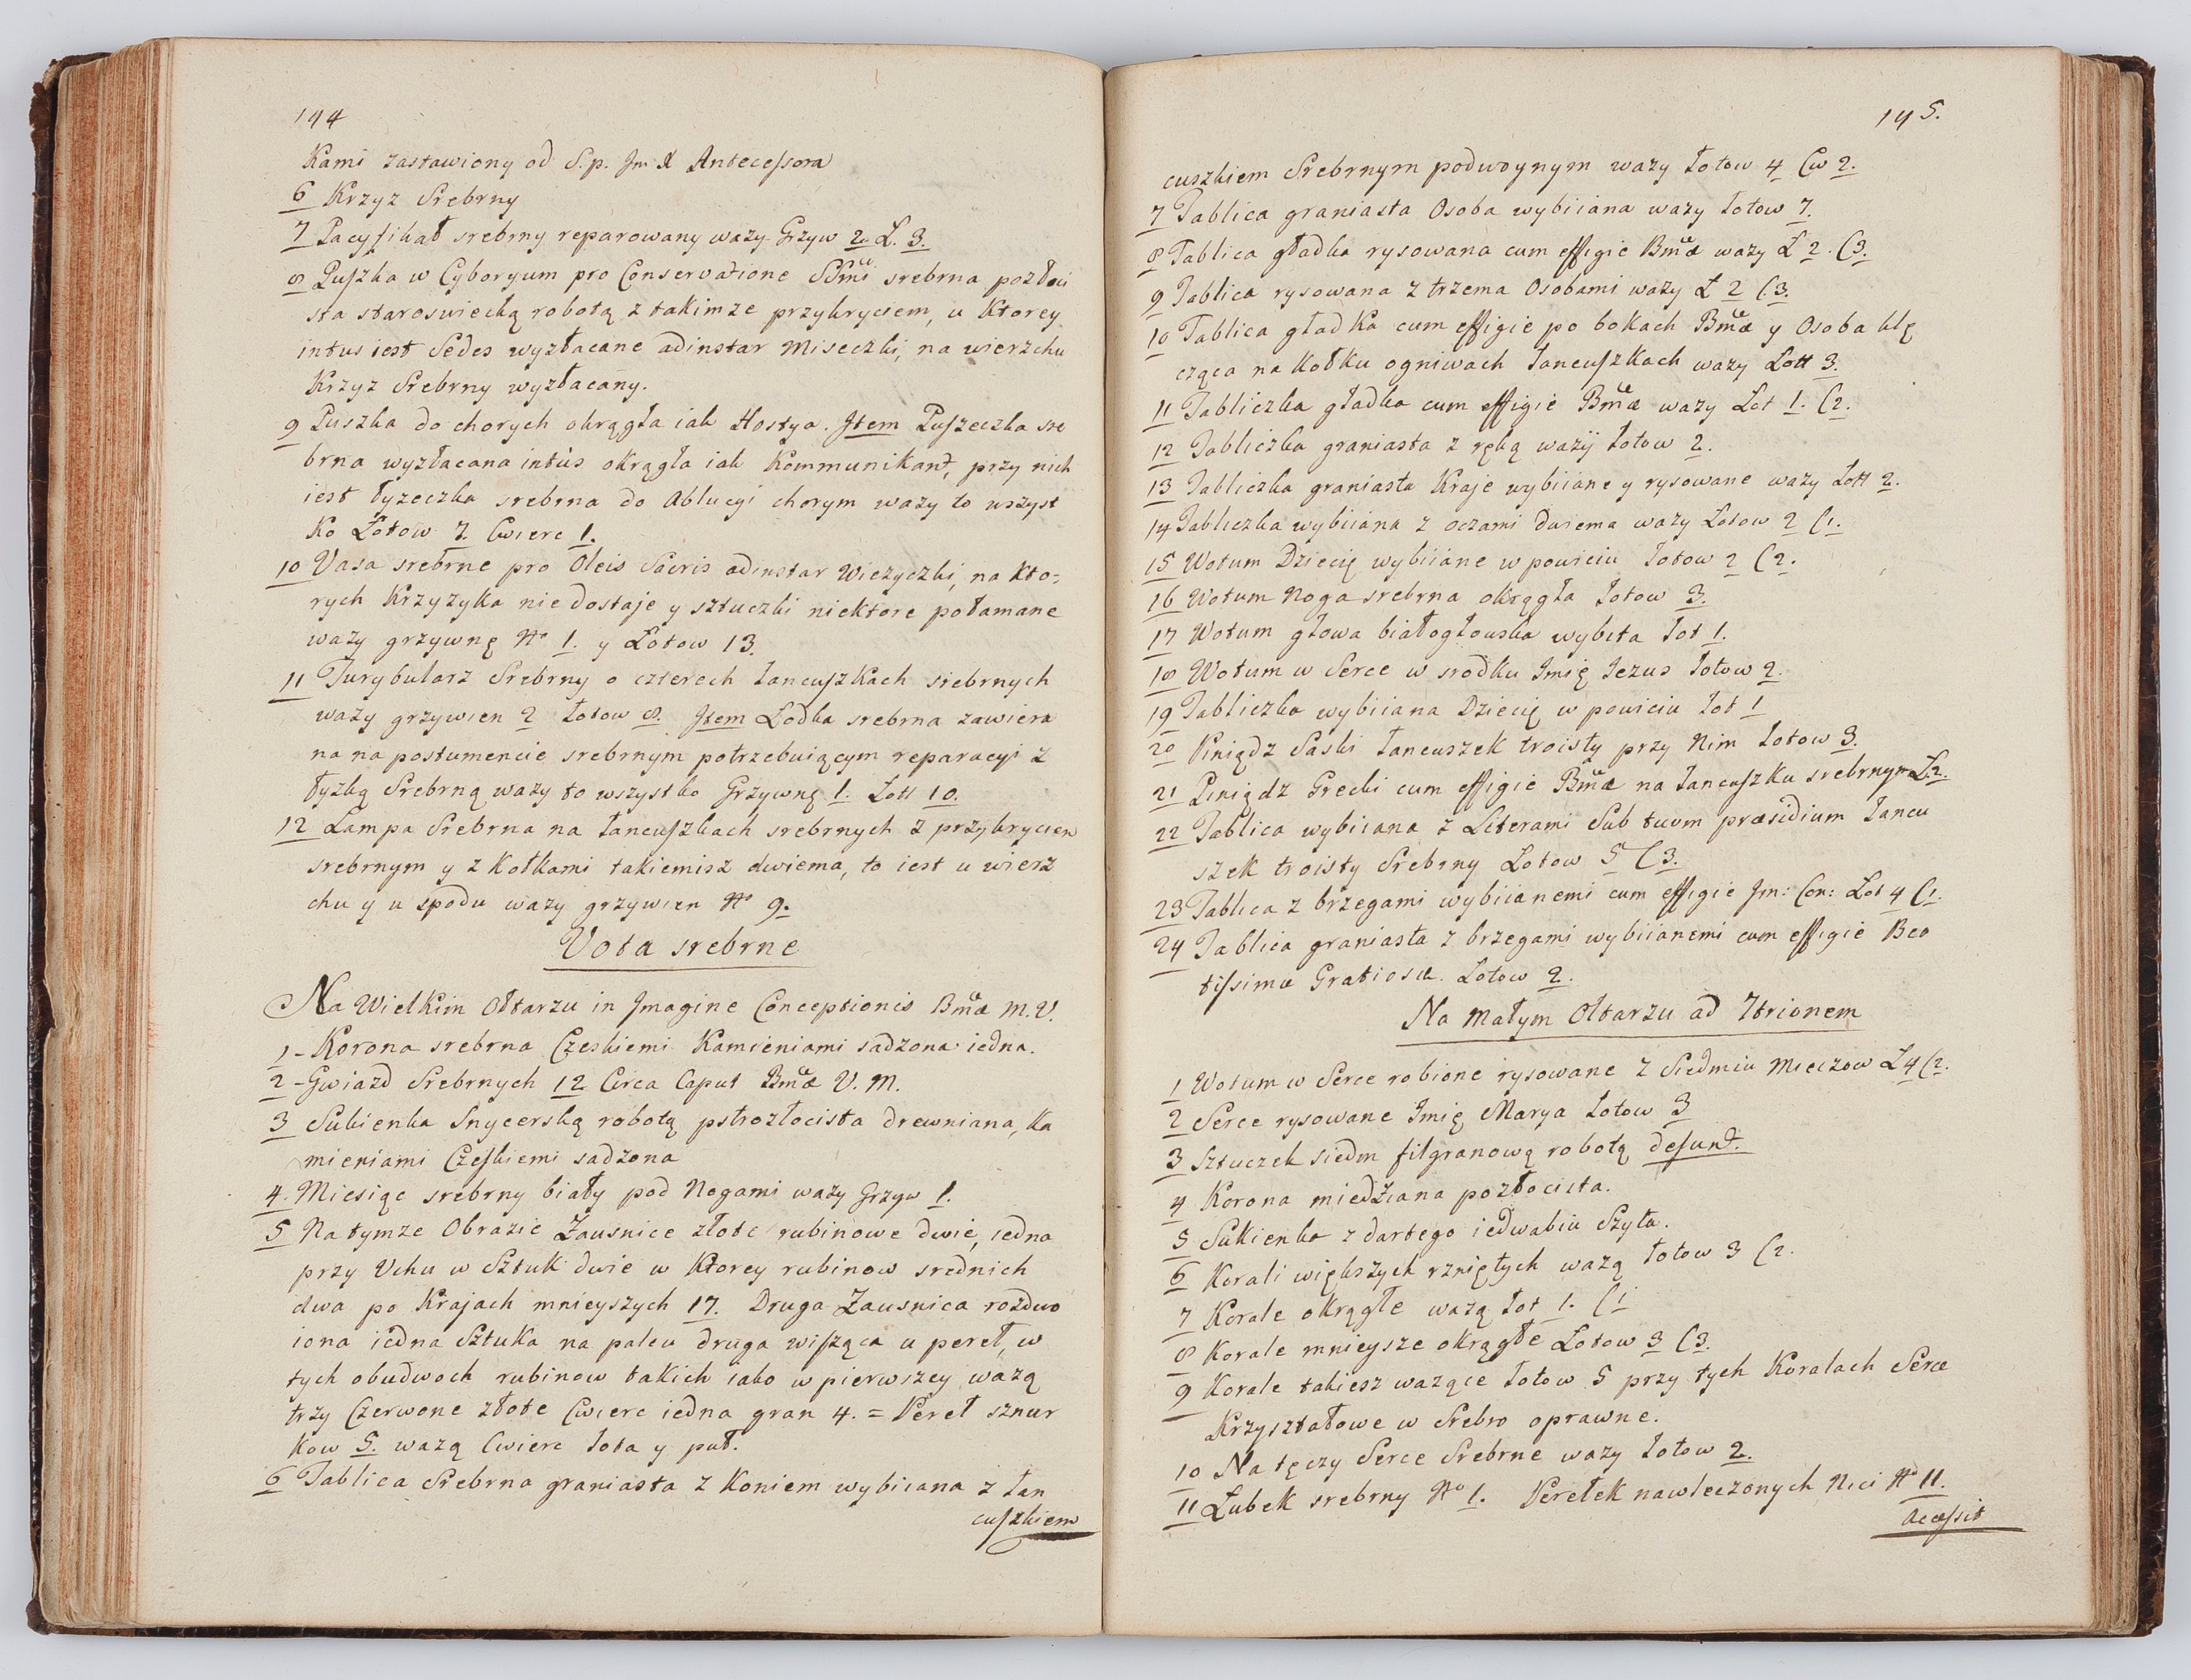 144
Kami zastawiony od S.p. Jm X Antecessora
6 Krzyz Srebrny
7 Pacyfikał srebrny reparowany wazy Grzyw 2 Ł. 3.
8 Puszka w Cyboryum pro Conservatione SSmi srebrna pozłoci
sta staroswiecką robotą z takimze przykryciem, u Ktorey
intus iest Sedes wyzłacane adinstar Miseczki, na wierzchu
Krzyz Srebrny wyzłacany.
9 Puszka do chorych okrągła iak Hostya. Item Puszeczka sre
brna wyzłacana intùs okrągła iak Kommunikant, przy nich
iest łyzeczka srebrna do Ablucyi chorym wazy to wszyst
Ko Łotow 7. Cwierc 1.
10 Vasa srebrne pro Oleis Sacris adinstar Wiezyczki, na Kto=
rych Krzyzyka nie dostaje y sztuczki niektore połamane
wazy grzywnę No 1. y Łotow 13.
11 Turybularz Srebrny o czterech łancuszkach srebrnych
wazy grzywien 2 łotow 8. Item Łodka srebrna zawiera
na na postumencie srebrnym potrzebuiącym reparacyi z
łyzką Srebrną wazy to wszystko Grzywnę 1. Łott 10.
12 Lampa Srebrna na łancuszkach srebrnych z przykrycien
srebrnym y z Kołkami takiemisz dwiema, to iest u wierz
chu y u spodu wazy grzywien No 9.
Vota srebrne
Na Wielkim Ołtarzu in Imagine Conceptionis Bmæ M.V.
1 - Korona srebrna Czeskiemi Kamieniami sadzona iedna.
2 - Gwiazd Srebrnych 12 Circa Caput Bmæ V. M.
3 Sukienka Snycerską robotą pstrozłocista drewniana, Ka
mieniami Czeskiemi sadzona
4. Miesiąc srebrny biały pod Nogami wazy Grzyw 1.
5 Na tymze Obrazie Zausnice złote rubinowe dwie, iedna
przy Uchu w Sztuk dwie w Ktorey rubinow srednich
dwa po Krajach mnieyszych 17. Druga Zausnica rozdwo
iona iedna Sztuka na palcu druga wisząca u pereł, w
tych obudwoch rubinow takich iako w pierwszey wazą
trzy Czerwone złote Cwierc iedna gran 4. = Pereł sznur
Kow 5. wazą Cwierc łota y puł.
6 Tablica Srebrna graniasta z Koniem wybiiana z łan
cuszkiem
145.
cuszkiem Srebrnym podwoynym wazy łotow 4 Cw 2.
7 Tablica graniasta Osoba wybiiana wazy łotow 7.
8 Tablica gładka rysowana cum effigie Bmæ wazy Ł 2. C 3.
9 Tablica rysowana z trzema Osobami wazy Ł 2 C. 3.
10 Tablica gładKa cum effigie po bokach Bmæ y Osoba klę
cząca na Kołku ogniwach łancuszkach wazy Łott 3.
11 Tabliczka gładka cum effigie Bmæ wazy Lot 1. C 2.
12 Tabliczka graniasta z ręką wazÿ łotow 2.
13 Tabliczka graniasta Kraje wybiiane y rysowane wazy Łott 2.
14 Tabliczka wybiiana z oczami dwiema wazy Łotow 2 C 1.
15 Wotum Dziecię wybiiane w powiciu łotow 2 C 2.
16 Wotum Noga srebrna okrągła łotow 3.
17 Wotum głowa białogłowska wybita łot 1.
18 Wotum w Serce w srodku Imię Iezus łotow 2.
19 Tabliczka wybiiana Dziecię w powiciu łot 1
20 Piniądz Saski łancuszek troisty przy Nim łotow 3.
21 Piniądz Grecki cum effigie Bmæ na łancuszku srebrnym Ł. 2.
22 Tablica wybiiana z Literami Sub tuum præsidium łancu
szek troisty Srebrny Łotow 5 C 3.
23 Tablica z brzegami wybiianemi cum effigie Jm: Con: Lot 4 C 1.
24 Tablica graniasta z brzegami wybiianemi cum effigie Bea
tissimæ Gratiosæ. Łotow 2.
Na małym Ołtarzu ad 7trionem
1 Wotum w Serce robione rysowane z Siedmiu Mieczow Ł 4 C 2.
2 Serce rysowane Imię Marya łotow 3
3 Sztuczek siedm filgranową robotą desunt.
4 Korona miedziana pozłocista.
5 Sukienka z dartego iedwabiu Szyta.
6 Korali większych rzniętych wazą łotow 3 C 2.
7 Korale okrągłe wazą łot 1. C 1
8 Korale mnieysze okrągłe Łotow 3 C 3.
9 Korale takiesz wazące łotow 5 przy tych Koralach Serce
Krzyształowe w Srebro oprawne.
10 Na tęczy Serce Srebrne wazy łotow 2.
11 Łubek srebrny No 1. Perełek nawleczonych Nici No 11.
Accessit